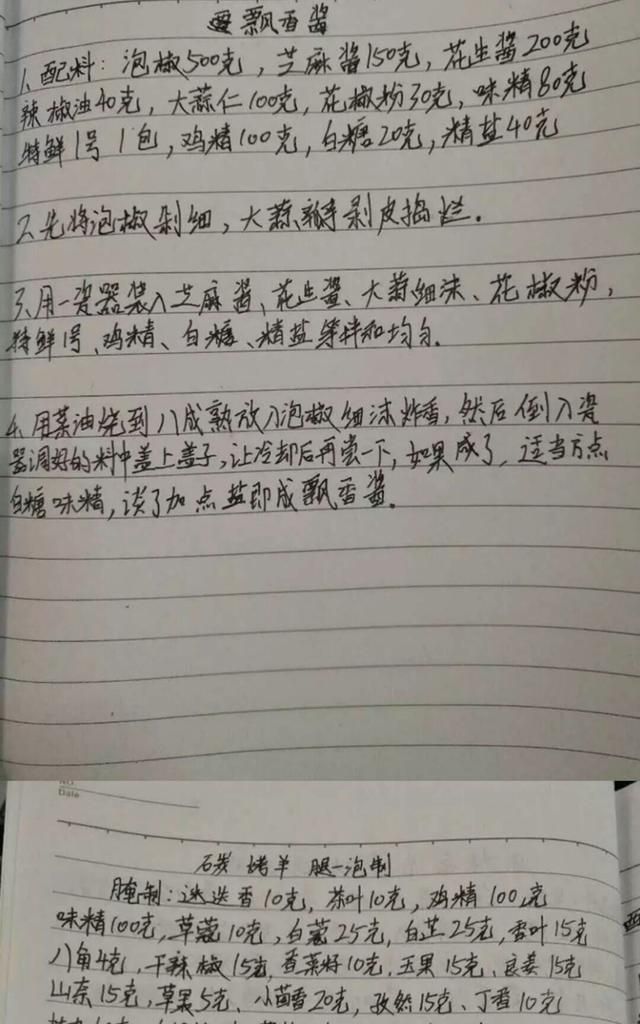 飘香酱
1、配料：泡椒500克，芝麻酱150克，花生酱200克
辣椒油40克，大蒜仁100克，花椒粉30克，味精80克
特鲜1号1包，鸡精100克，白糖20克，精盐40克
2、先将泡椒剁细，大蒜瓣剥皮捣烂。
3、用一瓷器装入芝麻酱、花生酱、大蒜细沫、花椒粉，
特鲜1号、鸡精、白糖、精盐等拌和均匀。
4、用菜油烧到八成熟放入泡椒细沫炸香，然后倒入瓷
器调好的料中盖上盖子，让冷却后再尝一下，如果咸了，适当方点
白糖味精，淡了加点盐即成飘香酱。
NO.
Date
碳烤羊腿-泡制
腌制：迷迭香10克，茶叶10克，鸡精100克
味精100克，草蔻10克，白蔻25克，白芷25克，香叶15克
八角4克，干辣椒15克，香菜籽10克，玉果15克、良姜15克
山奈15克，草果5克、小茴香20克，孜然15克、丁香10克